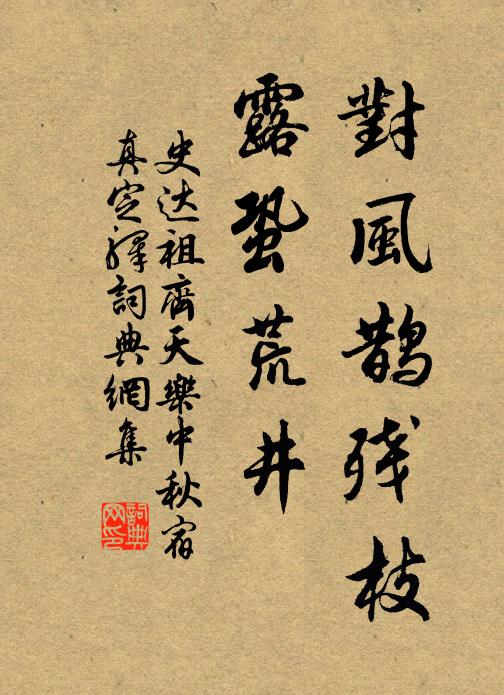 對風鵲残枝
露蛩荒井
史达祖齊天樂中秋宿
真定驛詞典網集
詞典
网印